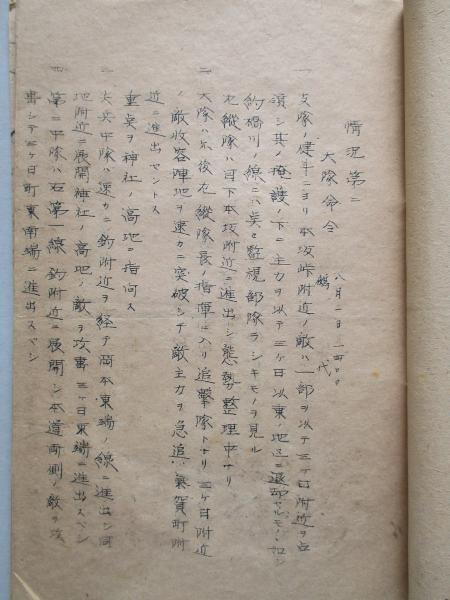 情況第二
大隊命令 八月二日一四〇〇
於 代
一 支隊ノ健斗ニヨリ本坂峠附近ノ敵ハ一部ヲ以テ三ケ日附近ヲ占
領シ其ノ掩護ノ下ニ主力ヲ以テ三ケ日以東ノ地区ニ退却セルモノノ如シ
釣橋川ノ線ニハ点々監視部隊ラシキモノヲ見ル
右縦隊ハ目下本坂附近ニ進出シ態勢整理中ナリ
二 大隊ハ爾後左縦隊長ノ指揮ニ入リ追撃隊トナリ三ケ日附近
ノ敵収容陣地ヲ速カニ突破シテ敵主力ヲ急追氣賀町附
近ニ進出セントス
重点ヲ神社ノ高地ニ指向ス
三 尖兵中隊ハ速カニ釣附近ヲ経テ岡本東端ノ線ニ進出シ同
地附近ニ展開神社ノ高地ノ敵ヲ攻撃三ケ日東端ニ進出スベシ
四 第二中隊ハ右第一線釣附近ニ展開シ本道両側ノ敵ヲ攻
撃シテ三ケ日町東南端ニ進出スベシ